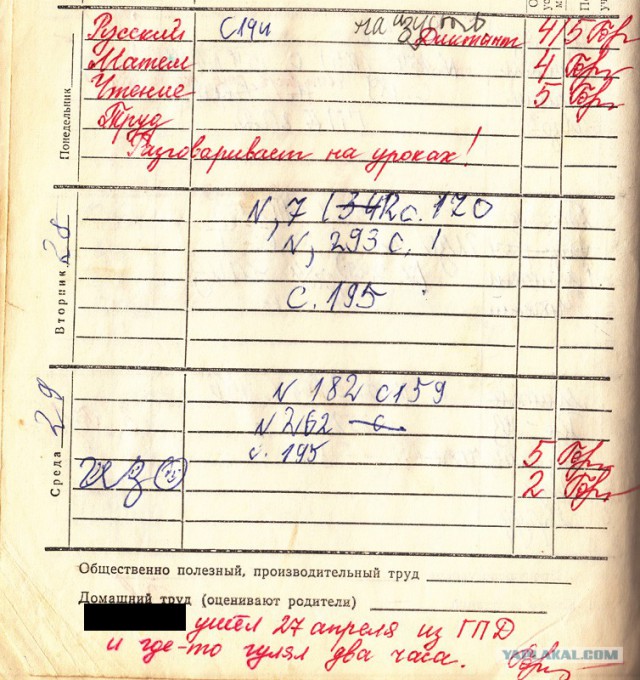 Русский С194 наизусть Диктант 4/5
Матем 4
Чтение 5
Труд
Разговаривает на уроках!
Понедельник
N 7 с. 120
N 293 с.
с. 195
Вторник 28
N 182 с159
N 262
с. 195 5
ИЗО 2
Среда 29
Общественно полезный, производительный труд
Домашний труд (оценивают родители)
ушёл 27 апреля из ГПД
и где-то гулял два часа.
YAPLAKAL.COM